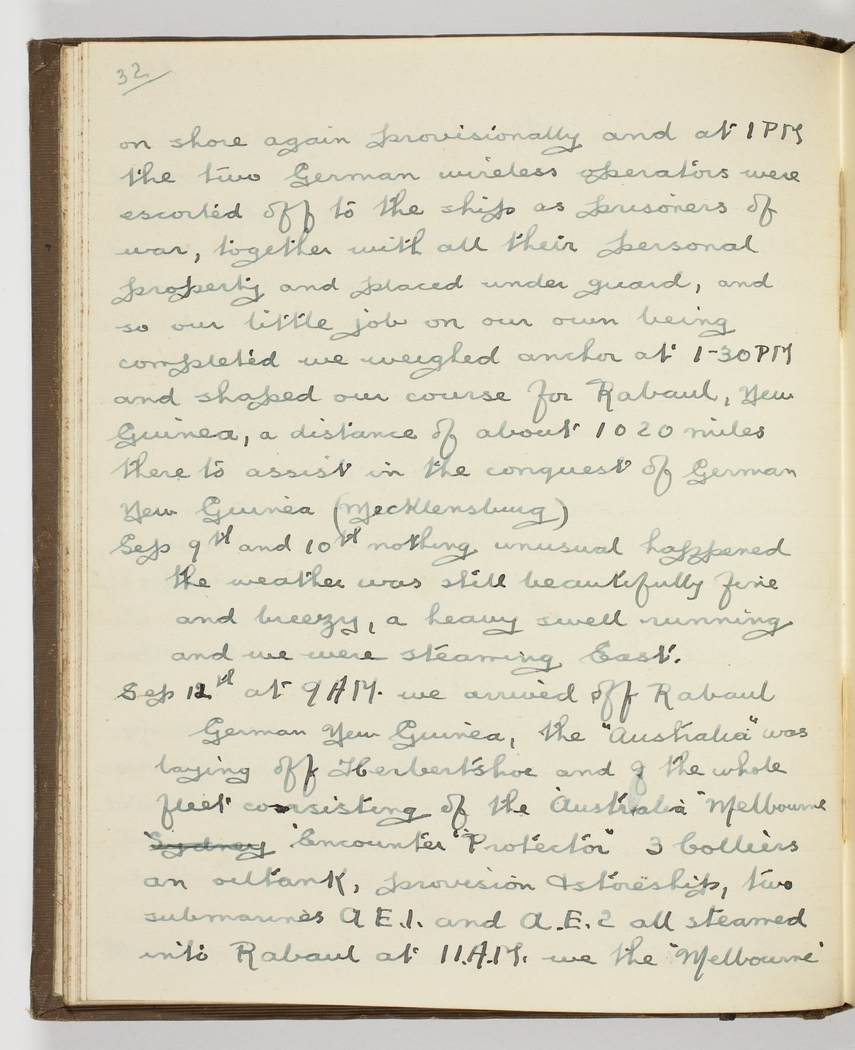 32
on shore again provisionally and at 1 PM
the two German wireless operators were
escorted off to the ship as prisoners of
war, together with all their personal
property and placed under guard, and
so our little job on our own being
completed we weighed anchor at 1-30 PM
and shaped our course for Rabaul, New
Guinea, a distance of about 1020 miles
there to assist in the conquest of German
New Guinea (Mecklensburg)
Sep 9th and 10th nothing unusual happened
the weather was still beautifully fine
and breezy, a heavy swell running
and we were steaming East.
Sep 12th at 9 AM. we arrived off Rabaul
German New Guinea, the "Australia" was
laying off Herbertshoe and g the whole
fleet consisting of the "Australia" "Melbourne
"Sydney "Encounter" "Protector" 3 Colliers
an oiltank, provision & storeship, two
submarines A E.1. and A.E.2 all steamed
into Rabaul at 11.A.M. we the "Melbourne"